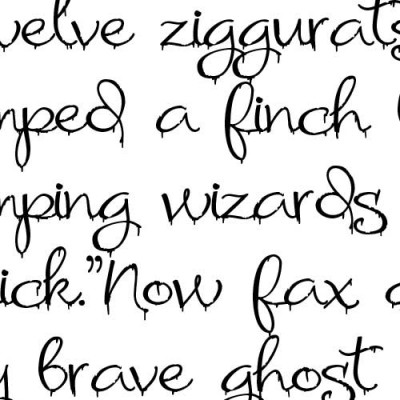 welve ziggurats
mped a finch
mping wizards
ick."Now fax
y brave ghost